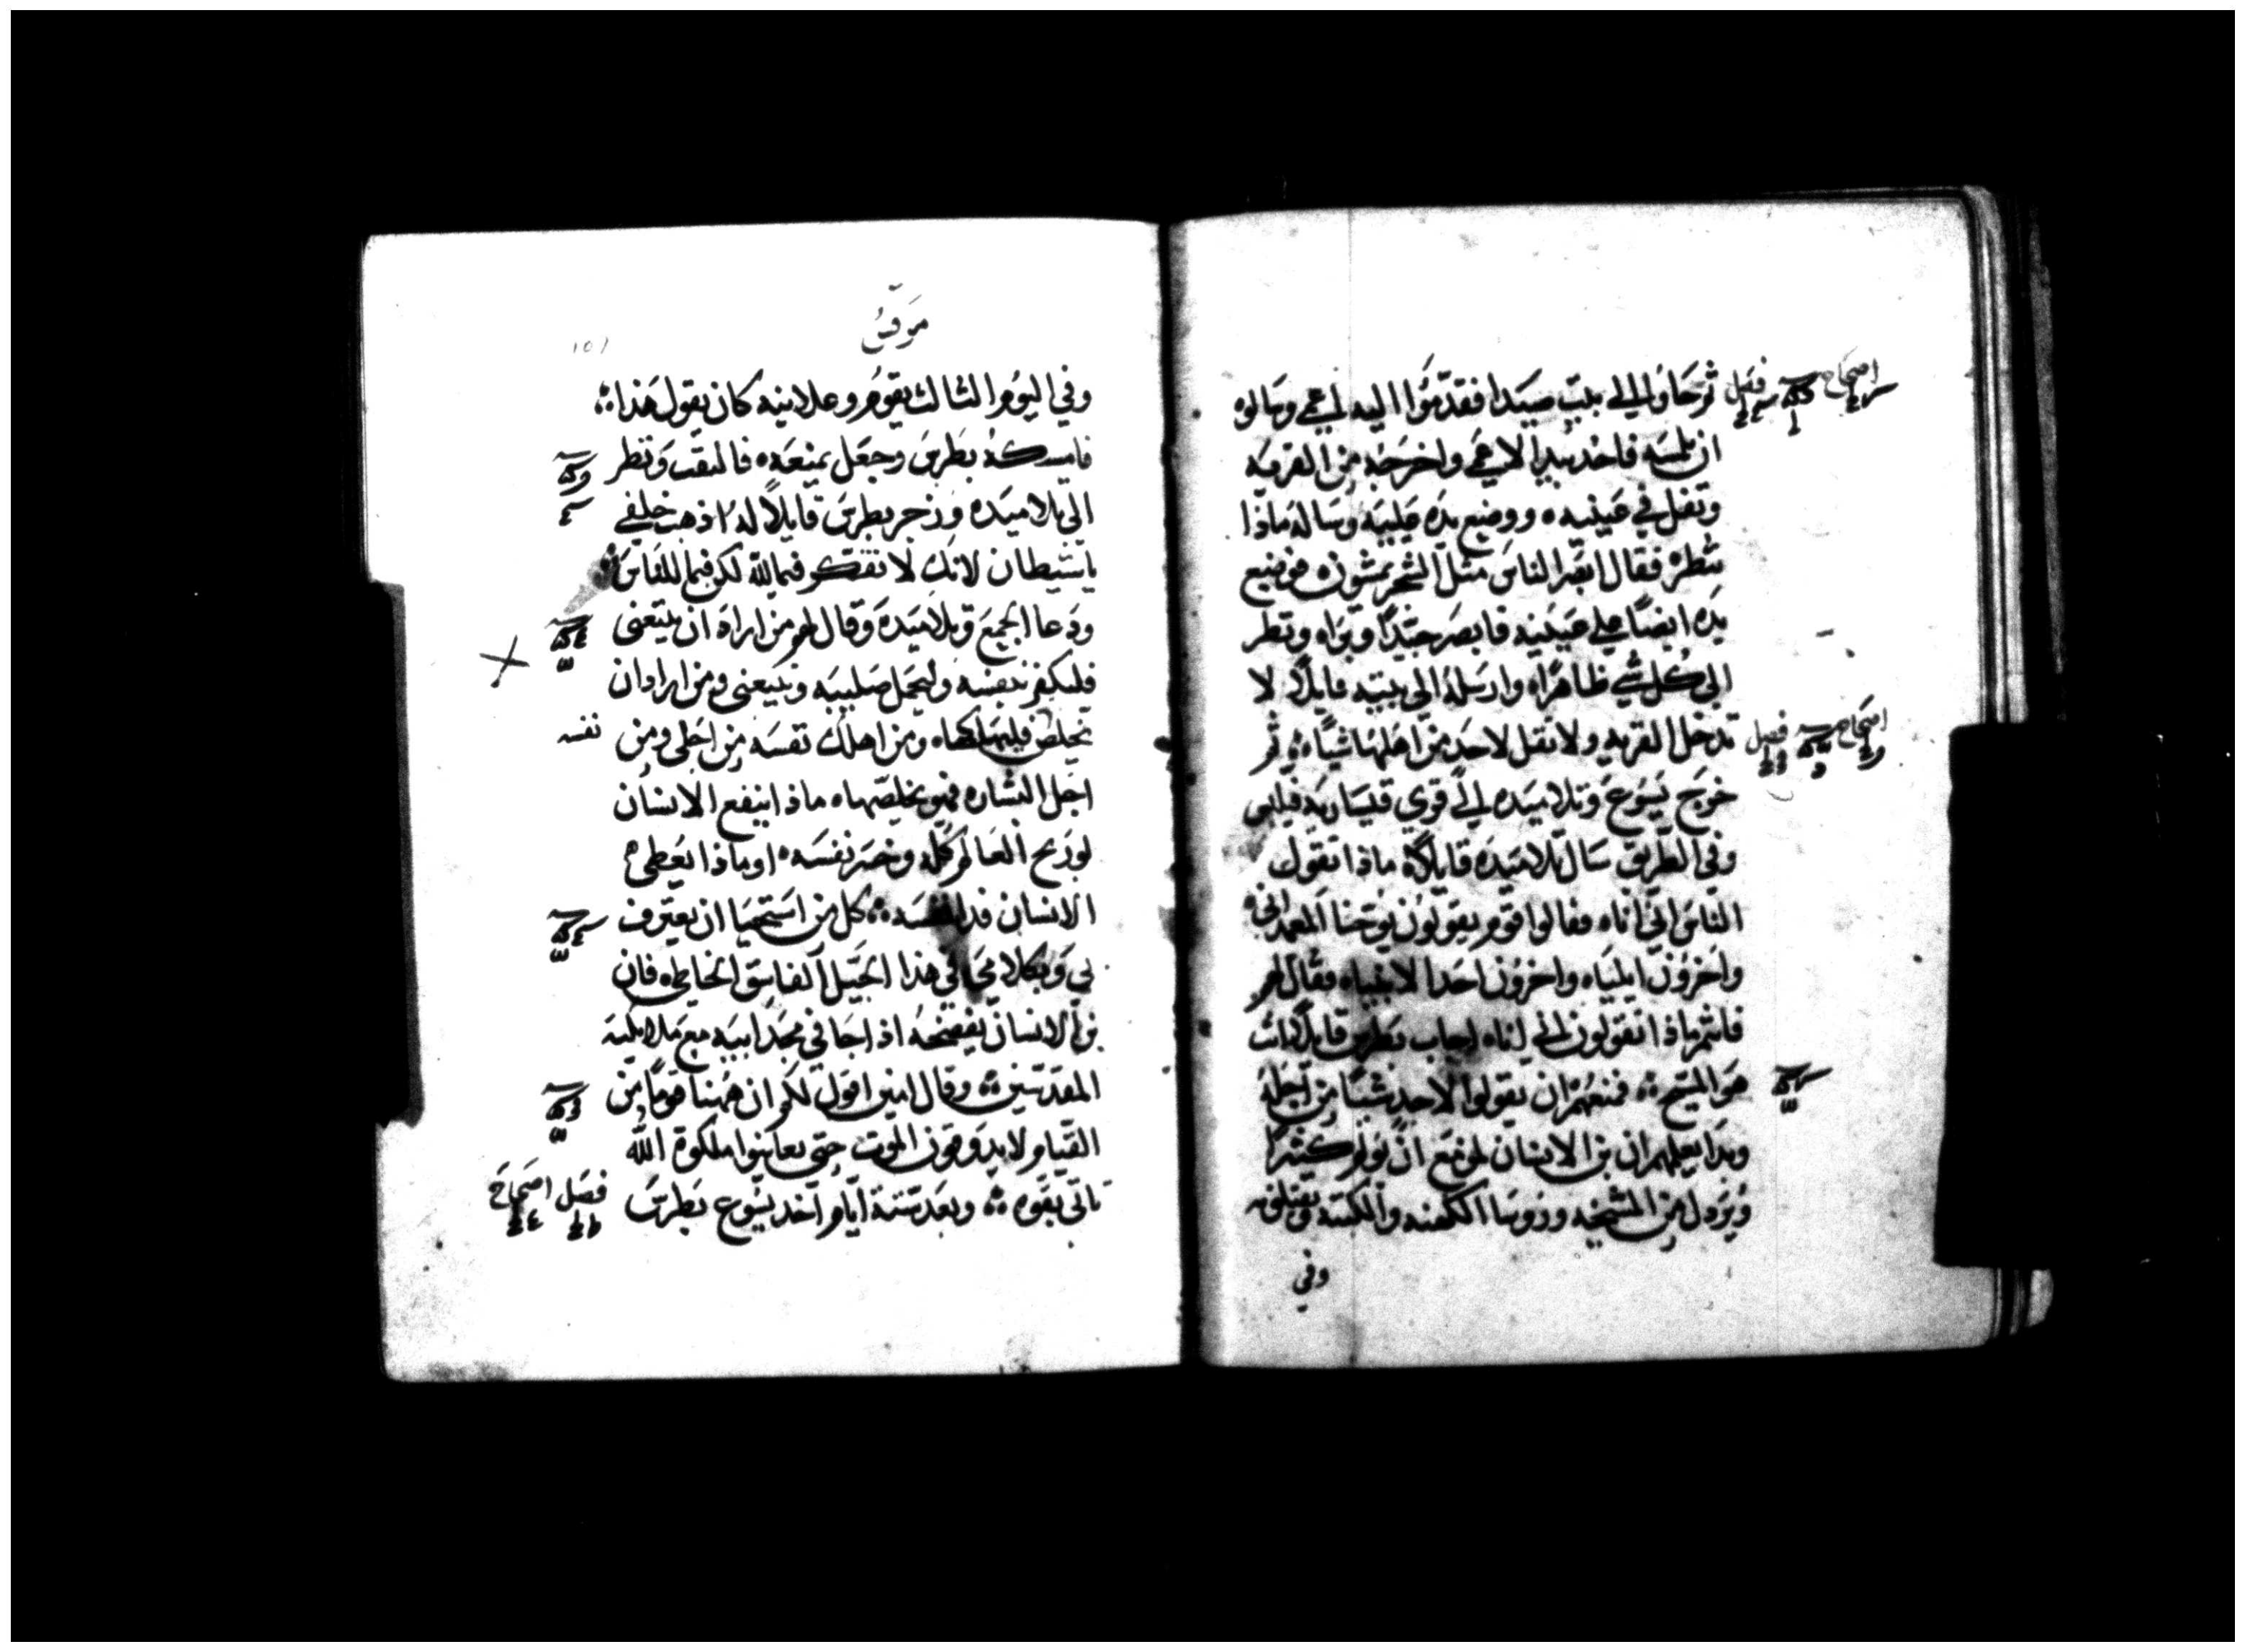 ثم جاوا الى بيت صيدا فقدموا اليه اعمى وسالوه
ان يلمسه فاخد بيد الاعمى واخرجه من القريه
وتفل في عينيه ووضع يده عليه وساله ماذا
ينظر فقال ابصر الناس مثل الشجر يمشون فوضع
يده ايضا على عينيه فابصر جيدا وبراه ونظر
الى كل شي ظاهرا وارسله الى بيته قايلا لا
تدخل القريه ولا تقل لاحد من اهلها شيا ثم
خرج يسوع وتلاميده الى قري قيساريه فيلبس
وفي الطريق سال تلاميده قايلا ماذا تقول
الناس اني انا فقالوا قوم يقولون يوحنا المعمداني
واخرون ايلياه واخرون احدا الانبياه فقال لهم
فانتم ماذا تقولون اني انا اجاب بطرس قايلا انت
هو المسيح فمنعهم ان يقولوا لاحد شيا من اجله
وبدا يعلمهم ان بن الانسان لمزمع ان يولم كثيرا
ويردل من المشيخه وروسا الكهنه والكتبه ويقتلونه
وفي
اصحاح
فصل
اصحاح
فصل
مرقس
وفي اليوم الثالث يقوم وعلانيه كان يقول هذا
فامسكه بطرس وجعل يمنعه فالتفت ونظر
الى تلاميده وزجر بطرس قايلا له اذهب خلفي
يا شيطان لانك لا تفتكر فيما لله لكن فيما للناس
ودعا الجمع وتلاميده وقال لهم من اراد ان يتبعني
فليكفر بنفسه وليحمل صليبه ويتبعني ومن اراد ان
يخلص نفسه فليهلكها ومن اهلك نفسه من اجلي ومن
اجل البشاره فهو يخلصها ماذا ينفع الانسان
لو ربح العالم كله وخسر نفسه او ماذا يعطي
الانسان فدا نفسه كل من استحيا ان يعترف
بي وبكلامي في هذا الجيل الفاسق الخاطي فان
بن الانسان يفضحه اذا جا في مجد ابيه مع ملايكته
المقدسين وقال امين اقول لكم ان ههنا قوما من
القيام لا يدوقون الموت حتى يعاينوا ملكوة الله
تاتي بقوه وبعد ستة ايام اخد يسوع بطرس
فصل
اصحاح